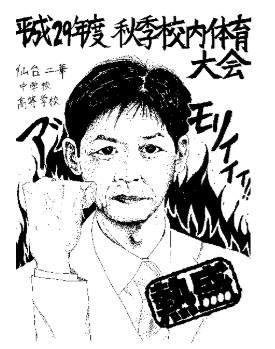 平成29年度 秋季校内体育
大会
仙台二華
中学校
高等学校
モリィィィ!!